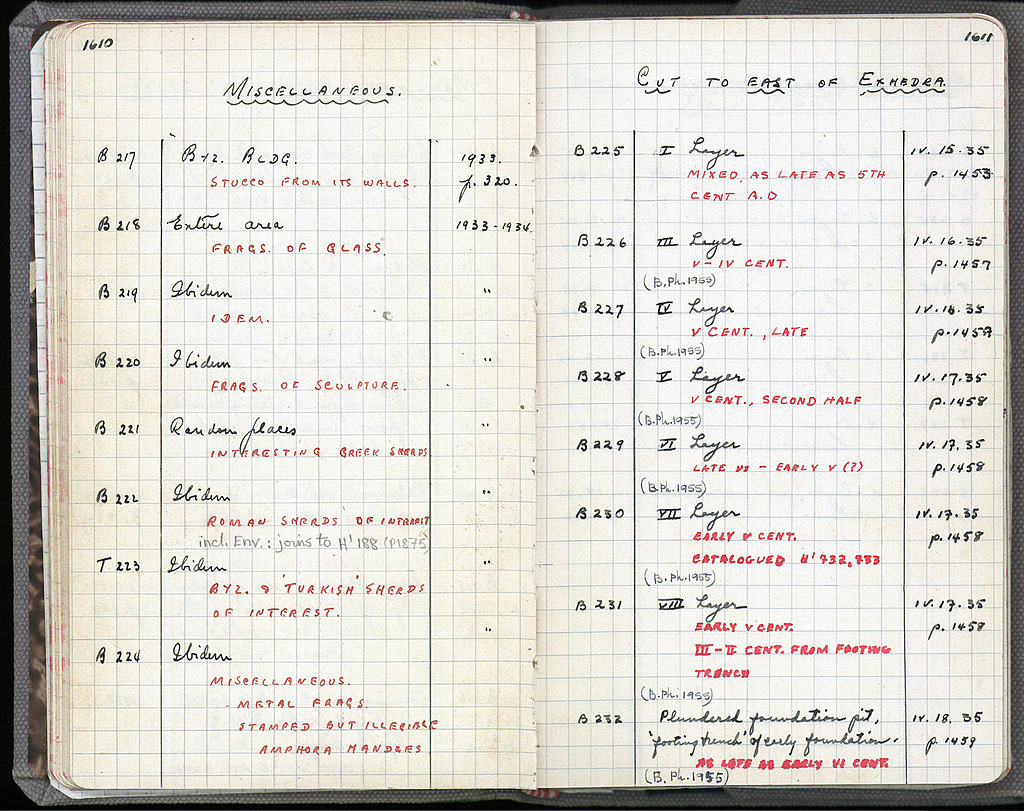 1610
MISCELLANEOUS.
B 217 BYZ. BLDG. 1933.
STUCCO FROM ITS WALLS. p. 320.
B 218 Entire area 1933-1934.
FRAGS. OF GLASS.
B 219 Ibidem "
IDEM.
B 220 Ibidem "
FRAGS. OF SCULPTURE.
B 221 Random places "
INTERESTING GREEK SHERDS
B 222 Ibidem "
ROMAN SHERDS OF INTEREST
incl. Env.: joins to H' 188 (P1875)
T 223 Ibidem "
BYZ. & 'TURKISH' SHERDS
OF INTEREST.
"
B 224 Ibidem
MISCELLANEOUS.
METAL FRAGS.
STAMPED BUT ILLEGIBLE
AMPHORA HANDLES
1611
CUT TO EAST OF EXHEDRA.
B 225 I Layer IV. 15. 35
MIXED, AS LATE AS 5TH p. 1453
CENT A.D
B 226 III Layer IV. 16. 35
V - IV CENT. p. 1457
(B.Ph.1955)
B 227 IV Layer IV. 16. 35
V CENT., LATE p. 1457
(B.Ph.1955)
B 228 V Layer IV. 17. 35
V CENT., SECOND HALF p. 1458
(B.Ph.1955)
B 229 VI Layer IV. 17. 35
LATE VI - EARLY V (?) p. 1458
(B.Ph.1955)
B 230 VII Layer IV. 17. 35
EARLY V CENT. p. 1458
CATALOGUED H' 732, 733
(B.Ph.1955)
B 231 VIII Layer IV. 17. 35
EARLY V CENT. p. 1458
III - II CENT. FROM FOOTING
TRENCH
(B.Ph.1955)
B 232 Plundered foundation pit, IV. 18. 35
'footing trench' of early foundation. p. 1459
AS LATE AS EARLY VI CENT.
(B. Ph. 1955)